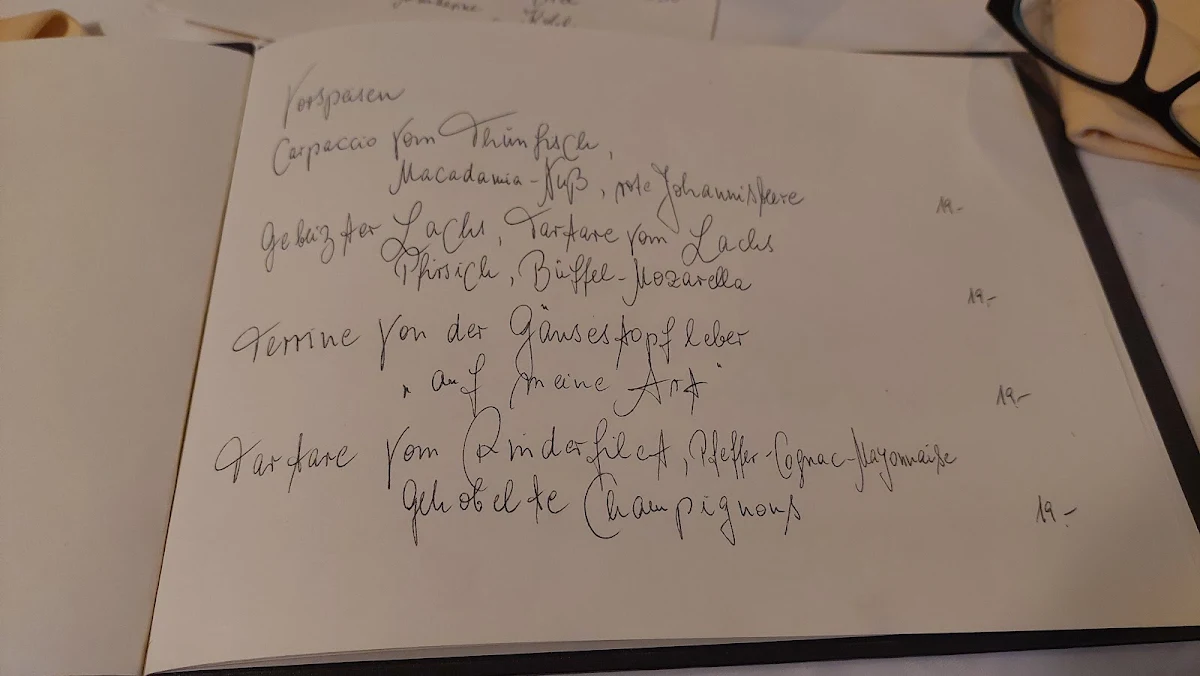 Vorspeisen
Carpaccio vom Thunfisch,
Macadamia-Nuß, rote Johannisbeere 19.-
Gebeizter Lachs, Tartare vom Lachs
Pfirsich, Büffel-Mozarella 19.-
Terrine von der Gänsestopfleber
„auf meine Art" 19.-
Tartare vom Rinderfilet, Pfeffer-Cognac-Mayonnaise
gehobelte Champignons 19.-